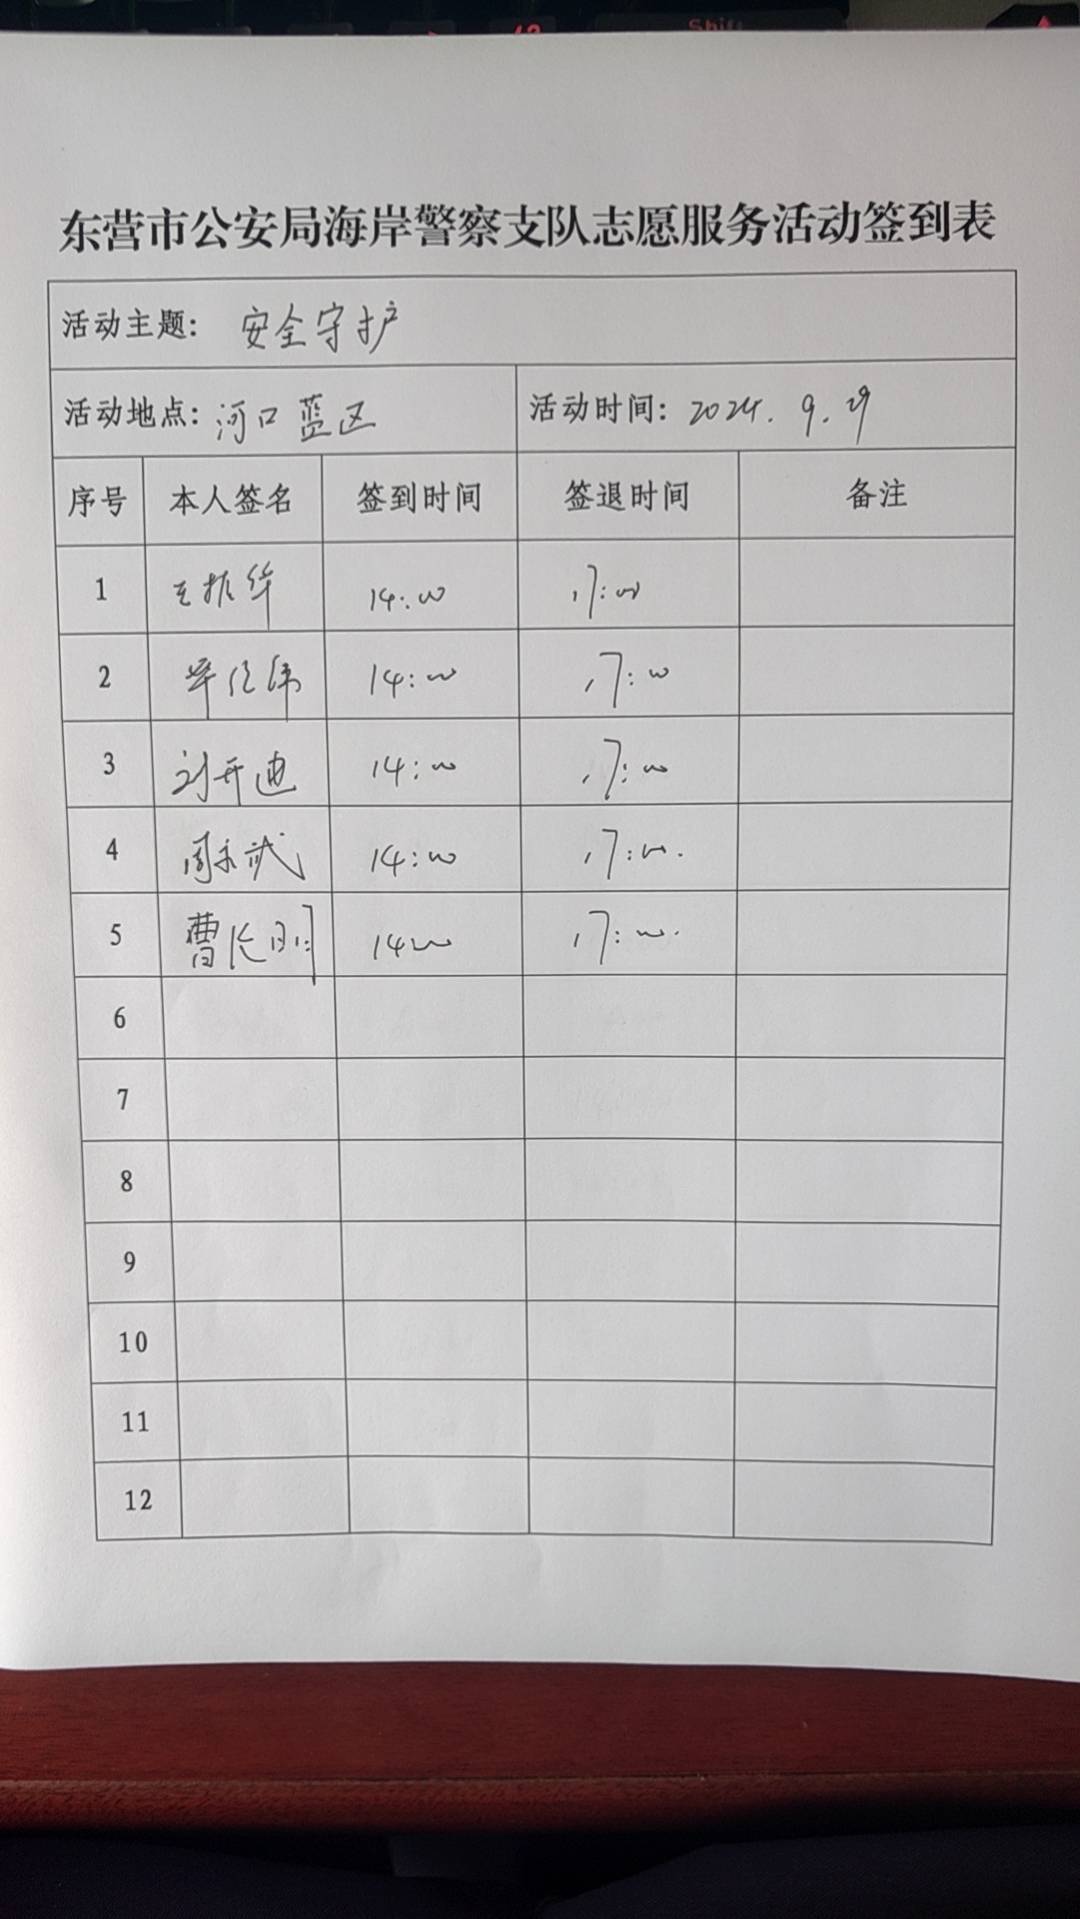 Shift
东营市公安局海岸警察支队志愿服务活动签到表
活动主题: 安全守护
活动地点: 河口蓝区 活动时间: 2024. 9. 29
序号 本人签名 签到时间 签退时间 备注
1 王振华 14:00 17:00
2 14:00 17:00
3 刘开迪 14:00 17:00
4 周永武 14:00 17:00.
5 曹长刚 1400 17:00.
6
7
8
9
10
11
12